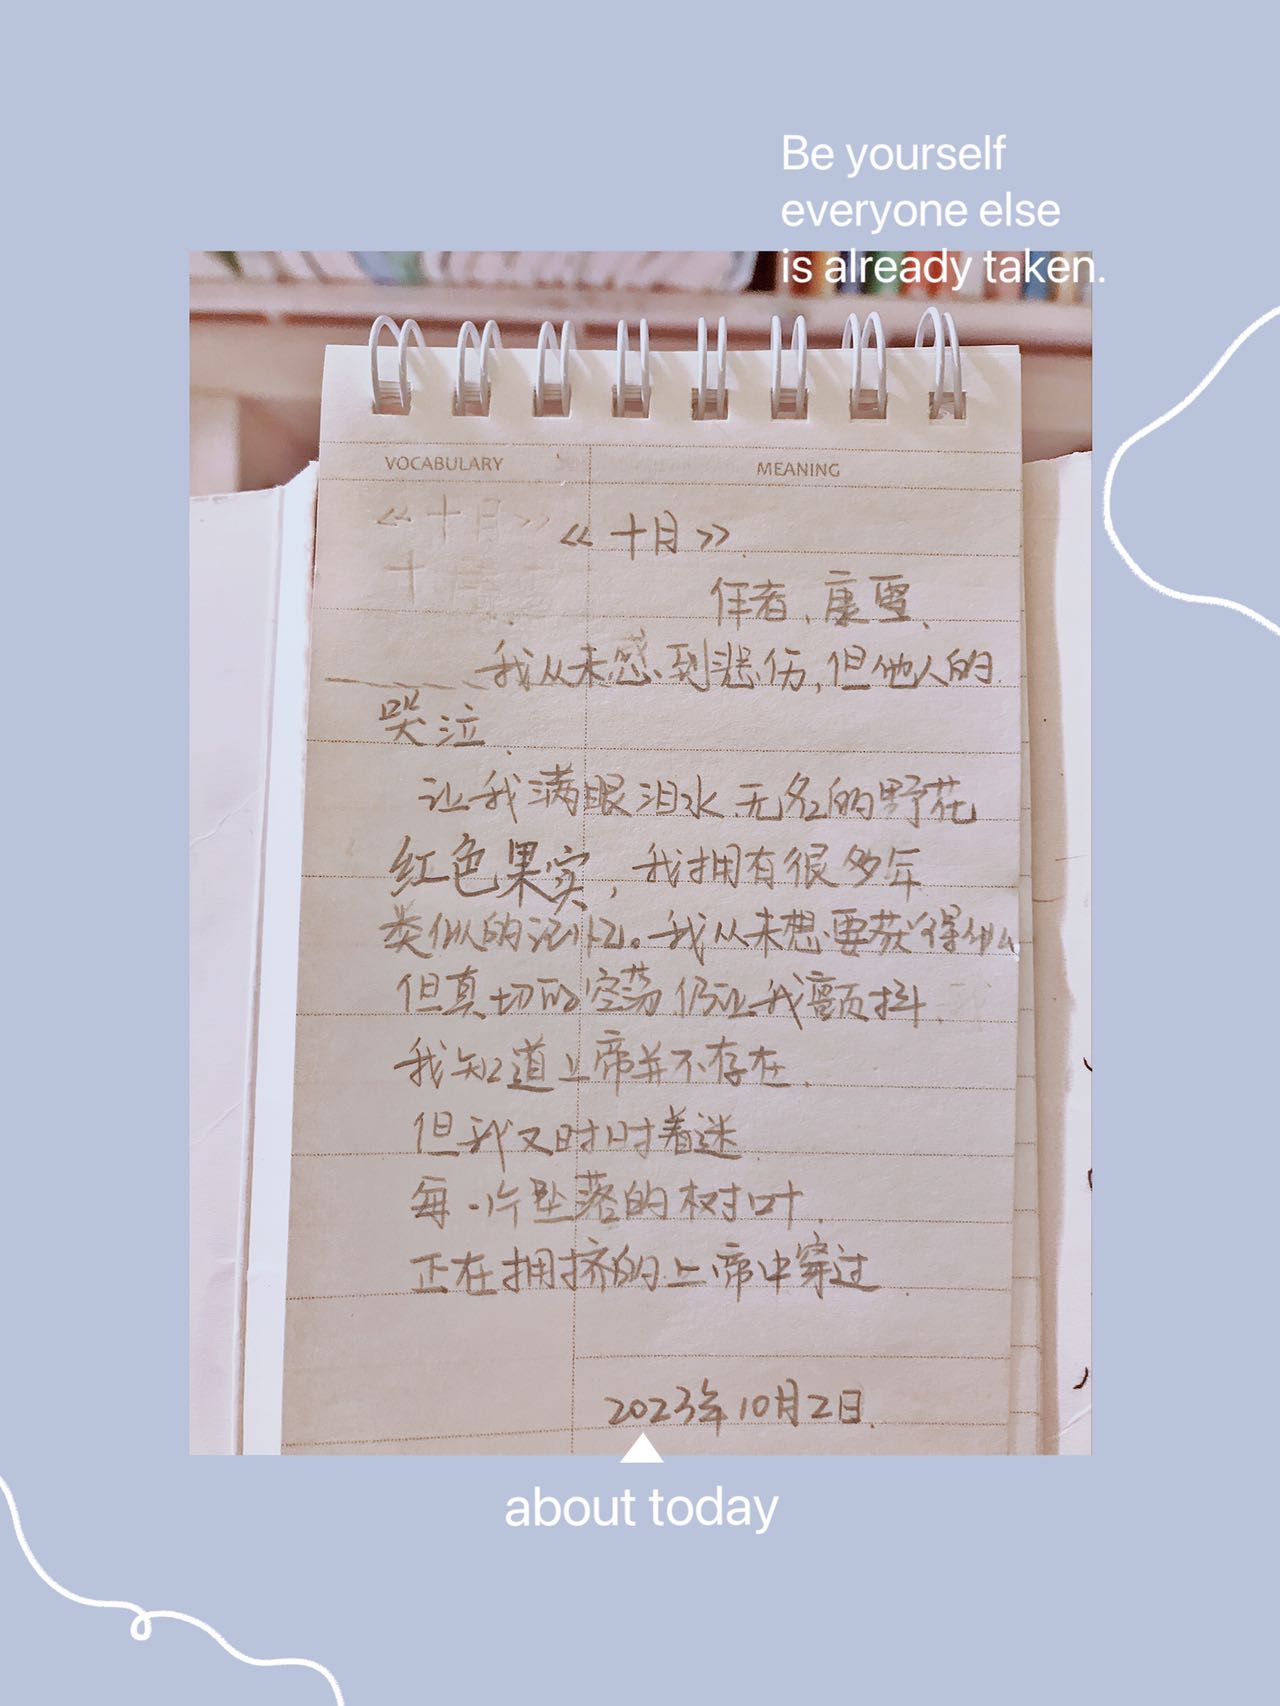 Be yourself
everyone else
is already taken.
VOCABULARY
MEANING
《十月》
《十月》
作者、康雪、
我从未感到悲伤,但他人的
哭泣、
让我满眼泪水、无名的野花
红色果实,我拥有很多年
类似的记忆。我从未想要获得什么
但真切的空荡仍让我颤抖、
我知道上帝并不存在、
但我又时时着迷
每一片坠落的树叶、
正在拥挤的上帝中穿过、
2023年10月2日、
about today